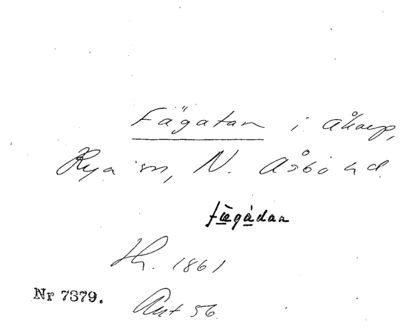 Fägatan i Åkarp,
Rya sn, N. Åsbo hd.
fǟgàdaa
Hr. 1861
Nr 7379.
56